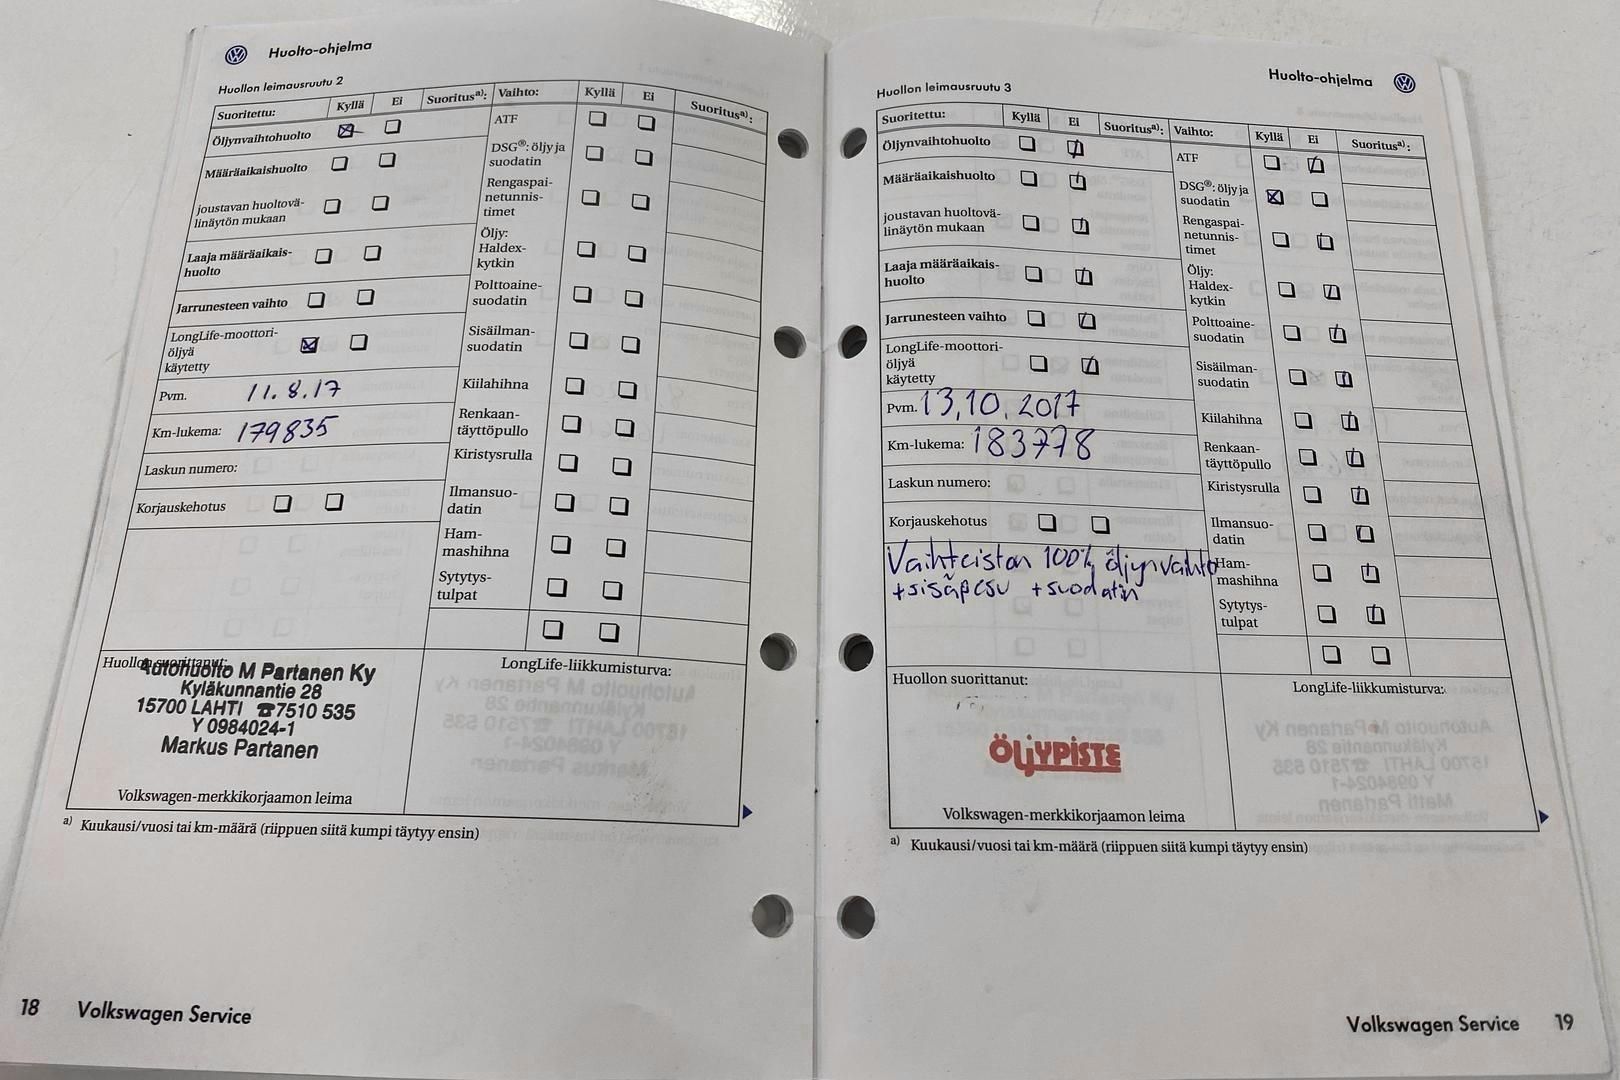 Huolto-ohjelma
Huollon leimausruutu 2
Suoritettu: Kyllä Ei Suoritus a): Vaihto: Kyllä Ei Suoritus a):
Öljynvaihtohuolto
Määräaikaishuolto
joustavan huoltovä-
linäytön mukaan
Laaja määräaikais-
huolto
Jarrunesteen vaihto
LongLife-moottori-
öljyä
käytetty
Pvm. 11.8.17
Km-lukema: 179835
Laskun numero:
Korjauskehotus
ATF
DSG®: öljy ja
suodatin
Rengaspai-
netunnis-
timet
Öljy:
Haldex-
kytkin
Polttoaine-
suodatin
Sisäilman-
suodatin
Kiilahihna
Renkaan-
täyttöpullo
Kiristysrulla
Ilmansuo-
datin
Ham-
mashihna
Sytytys-
tulpat
Huollon suorittanut:
Autohuolto M Partanen Ky
Kyläkunnantie 28
15700 LAHTI ☎7510 535
Y 0984024-1
Markus Partanen
Volkswagen-merkkikorjaamon leima
LongLife-liikkumisturva:
a) Kuukausi/vuosi tai km-määrä (riippuen siitä kumpi täytyy ensin)
18 Volkswagen Service
Huolto-ohjelma
Huollon leimausruutu 3
Suoritettu: Kyllä Ei Suoritus a): Vaihto: Kyllä Ei Suoritus a):
Öljynvaihtohuolto
Määräaikaishuolto
joustavan huoltovä-
linäytön mukaan
Laaja määräaikais-
huolto
Jarrunesteen vaihto
LongLife-moottori-
öljyä
käytetty
Pvm. 13,10,2017
Km-lukema: 183778
Laskun numero:
Korjauskehotus
Vaihteiston 100% öljynvaihto
+sisäpesu +suodatin
ATF
DSG®: öljy ja
suodatin
Rengaspai-
netunnis-
timet
Öljy:
Haldex-
kytkin
Polttoaine-
suodatin
Sisäilman-
suodatin
Kiilahihna
Renkaan-
täyttöpullo
Kiristysrulla
Ilmansuo-
datin
Ham-
mashihna
Sytytys-
tulpat
Huollon suorittanut:
ÖLJYPISTE
Volkswagen-merkkikorjaamon leima
LongLife-liikkumisturva:
a) Kuukausi/vuosi tai km-määrä (riippuen siitä kumpi täytyy ensin)
Volkswagen Service 19